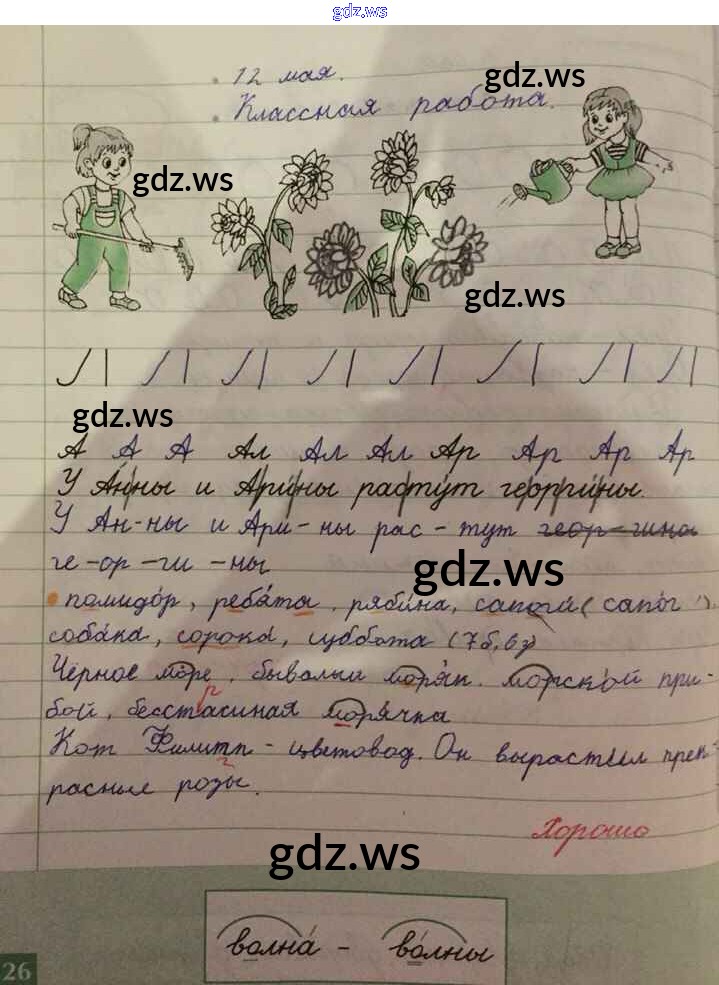 gdz.ws
12 мая.
gdz.ws
Классная работа.
gdz.ws
gdz.ws
gdz.ws
А А А Ал Ал Ал Ар Ар Ар Ар
У Анны и Арины растут георгины.
У Ан-ны и Ари-ны рас-тут геор-гина
ге-ор-ги-ны
gdz.ws
помидо́р, ребя́та, ряби́на, сапоги́ (сапо́г)
соба́ка, соро́ка, суббота (7б, 6з)
Чёрное мо́ре, бывалый моря́к, морско́й при-
бой, бесстасиная моря́чка
р
Кот Филипп - цветовод. Он вырастил прек-
расные розы.
г
Хорошо
gdz.ws
волна́ - во́лны
26